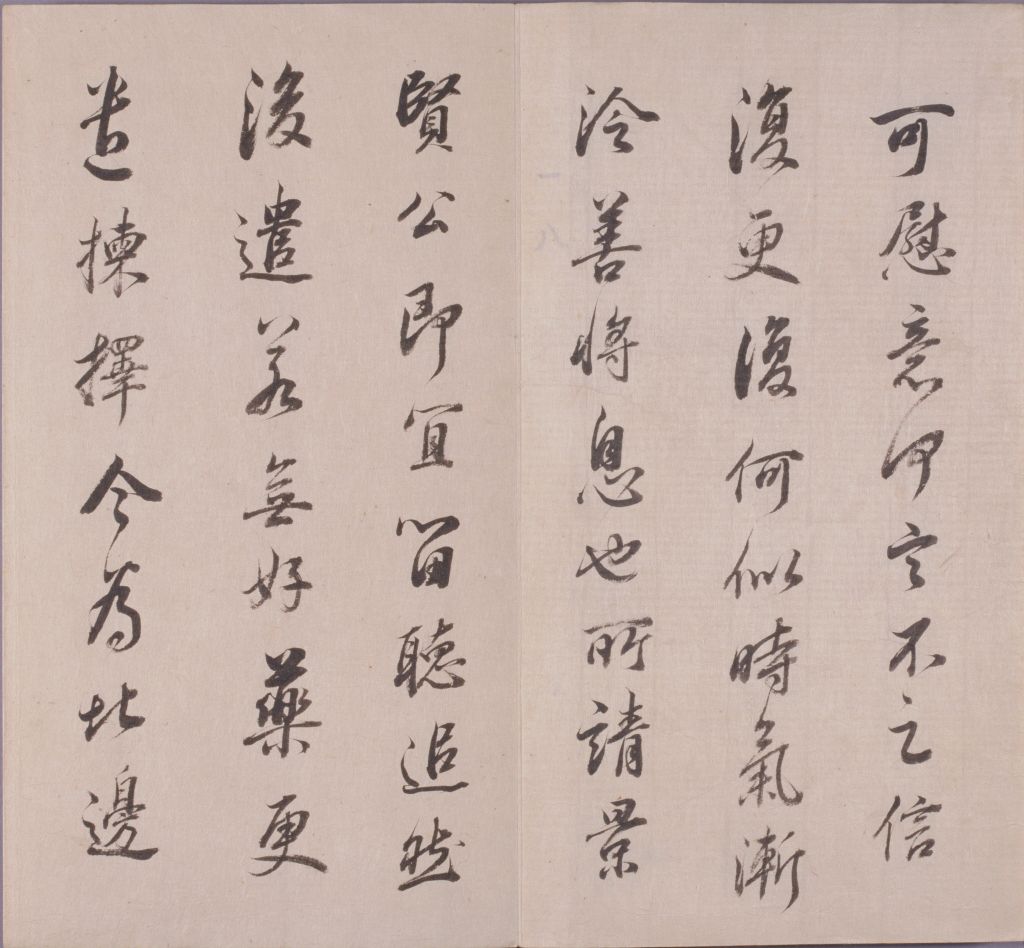 可慰意定不之信
復更復何似時氣漸
冷善將息也所請景
賢公即宜留聽追然
後遣若無好藥更
遣揀擇今為北邊